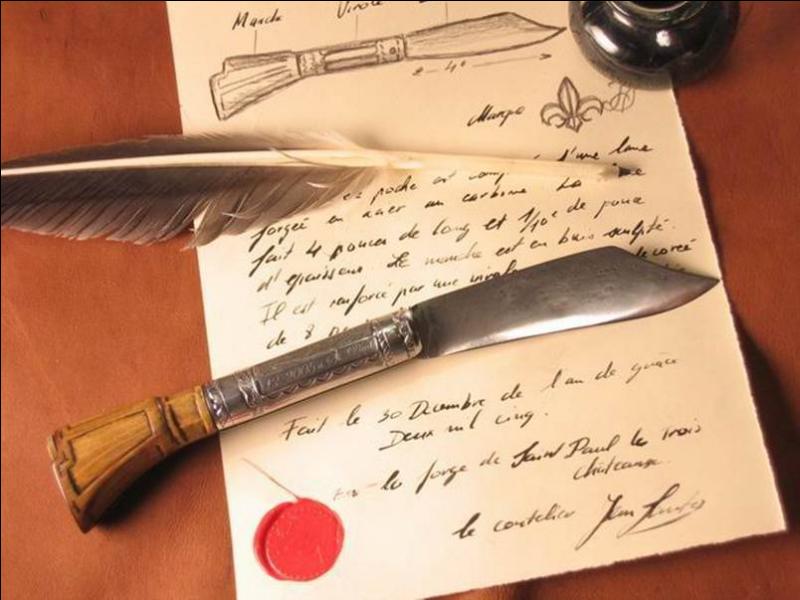 Manche Virole
4"
Marque
poche est d'une lame
forgée en acier au carbone La
fait 4 pouces de long et 1/10e de pouce
d'épaisseur. Le manche est en buis sculpté.
Il est renforcé par une virole
de 8
Fait le 30 Dcembre de l'an de grâce
Deux mil cinq.
En la forge de Saint Paul le Trois
châteaux.
le coutelier Jean